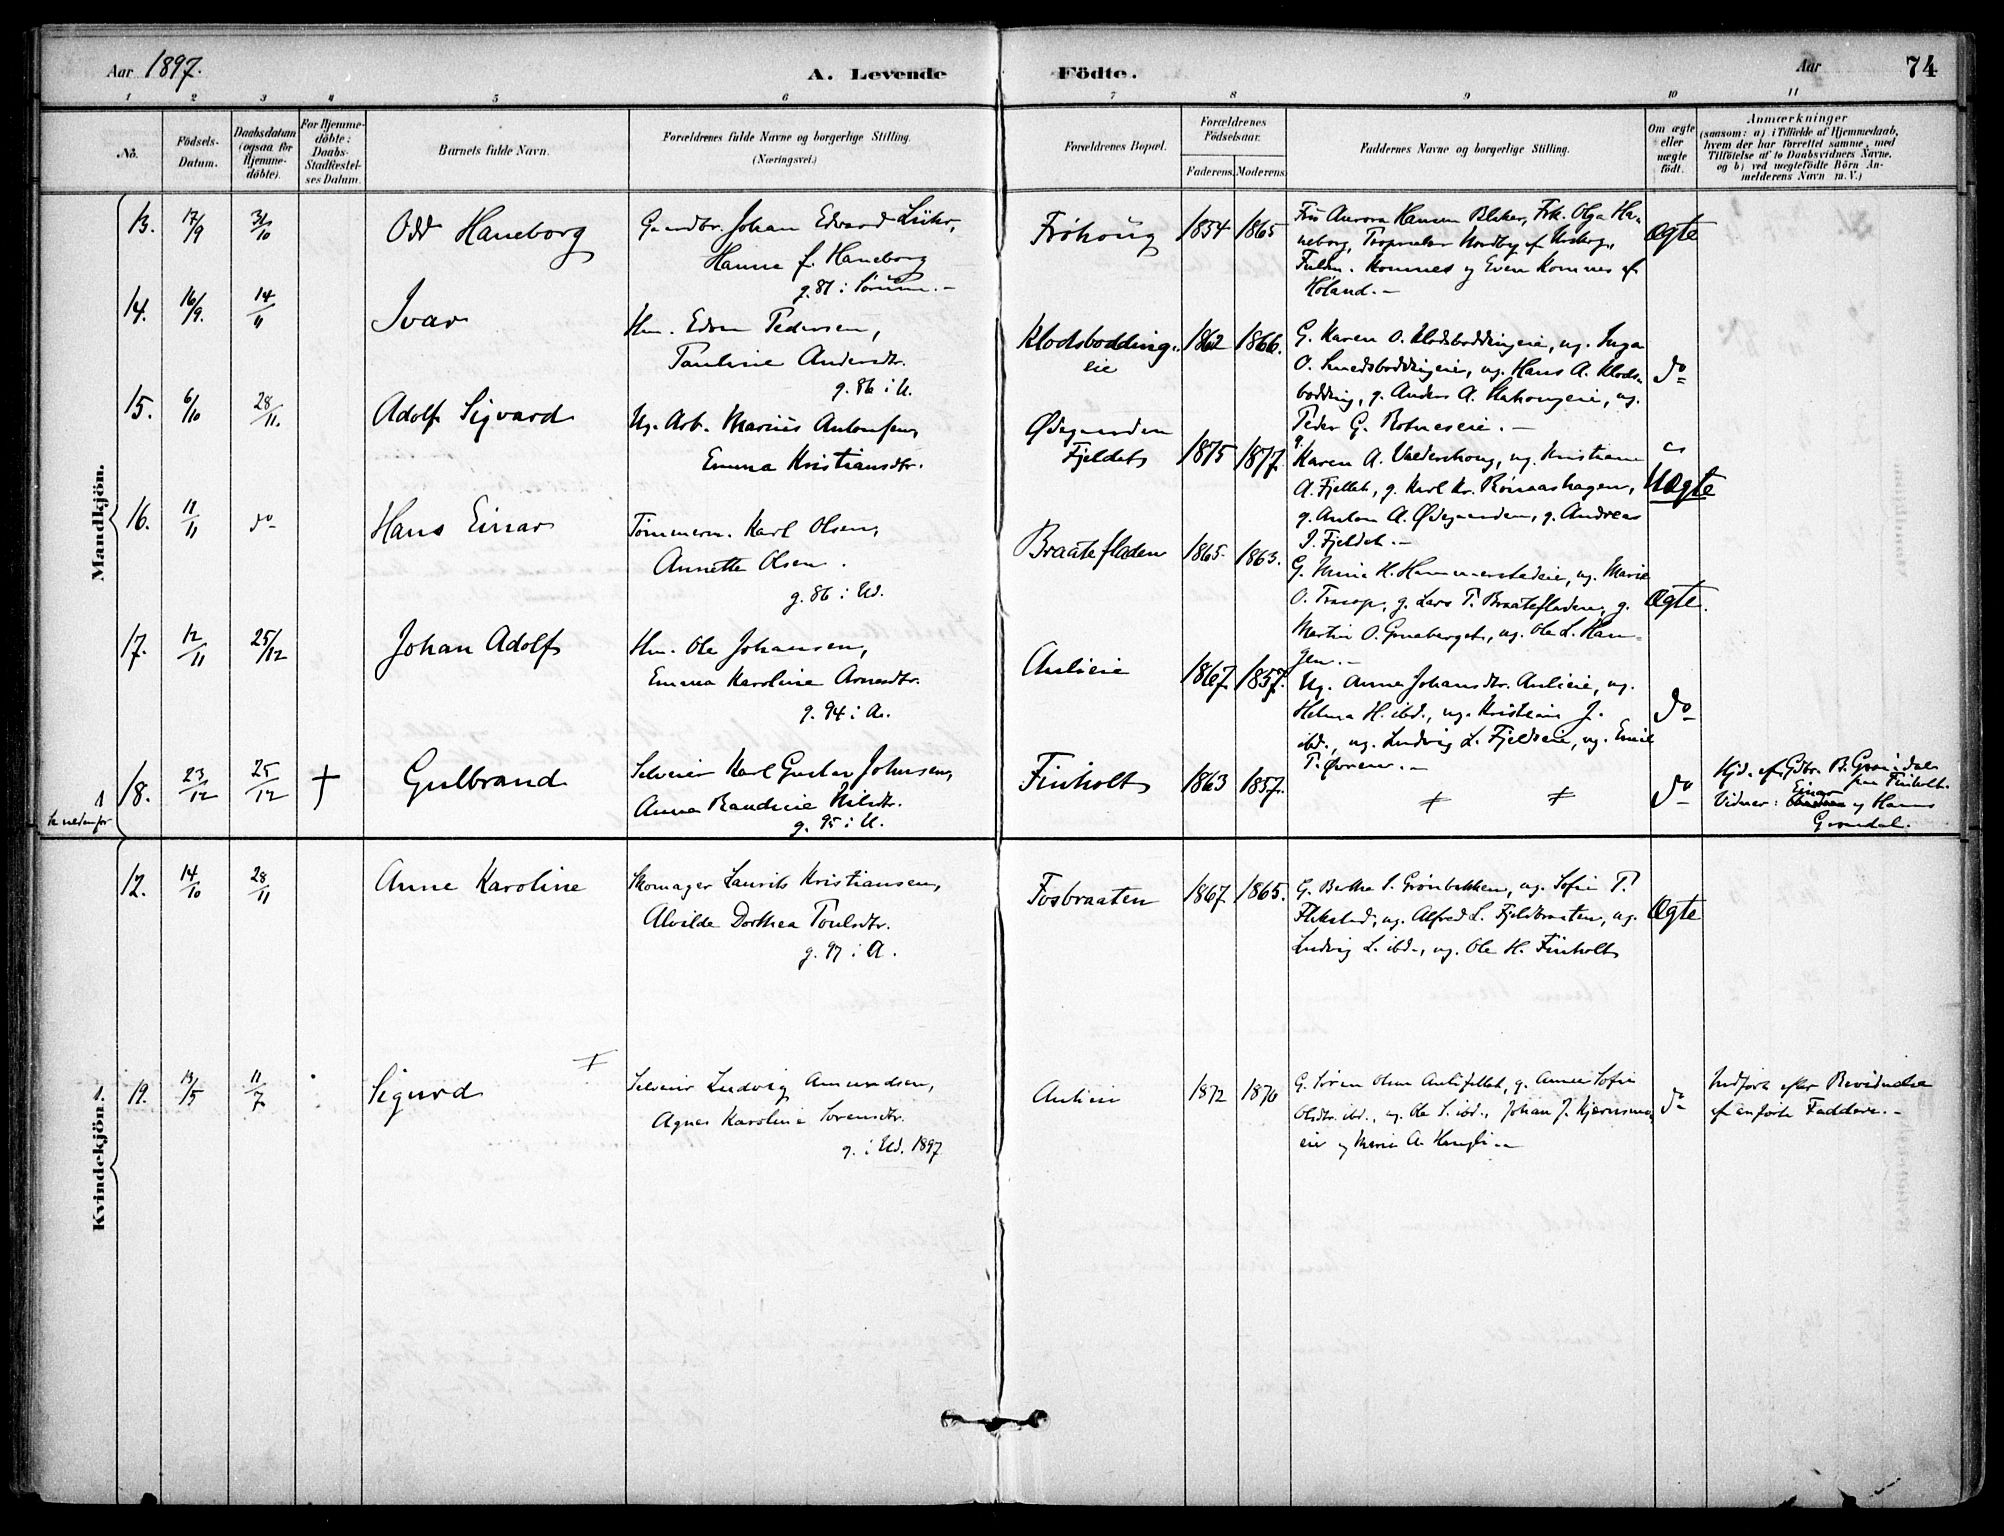 Aar 1897.
A. Levende Födte.
Aar
74
1 2 3 4 5 6 7 8 9 10 11
No.
Födsels-
Datum.
Daabsdatum
(ogsaa for
Hjemme-
döbte).
For Hjemme-
döbte:
Daabs-
Stadfæstel-
ses Datum.
Barnets fulde Navn.
Forældrenes fulde Navne og borgerlige Stilling.
(Næringsvei.)
Forældrenes Bopæl.
Forældrenes
Födselsaar.
Faderens. Moderens.
Faddernes Navne og borgerlige Stilling.
Om ægte
eller
uægte
födt.
Anmærkninger
(saasom: a) i Tilfælde af Hjemmedaab,
hvem der har forrettet samme, med
Tilföielse af to Daabsvidners Navne,
og b) ved uægtefödte Börn An-
melderens Navn m. V.)
Mandkjön.
13. 17/9 31/10 Odd Haneborg
Gaardbr. Johan Edvard Lühr,
Hanna f. Haneborg
g. 87 i Sørum.-
Frøhoug 1854 1865
Fru Aurora Hamm Blaker, Frk. Olga Ha-
neborg, Nordby af
Komnes og Even Komnes af
Høland.-
Ægte
14. 16/9. 14/11 Ivar
Hm. Edvin Pedersen,
Pauline Andersdtr.
g. 86 i U.
Klodsbodding-
eie 1862 1866.
G. Karen O. Klodsboddingeie, ug. Inga
O. Smedsboddingeie, ug. Hans A. Klods-
bodding, g. Anders A. ug.
Peder G. Rotneseie.-
do
15. 6/10 28/11. Adolf Sigvard
Ug. Arb. Marius Antonsen,
Emma Kristiansdtr.
Ødegaarden
Fjeldet 1875 1877.
g.
Karen A. Valderhoug, ug. Kristiane
A. Fjeldet, g. Karl Kr.
g. Anton A. Ødegaarden, g. Andreas
J. Fjeldet.-
Uægte
16. 11/11 do Hans Einar
Tømmerm. Karl Olsen,
Annette Olsen.
g. 86 i Ud.
Braatefladen 1865. 1863.
G. Mina H. Hammerstadeie, ug. Marie
O. g. Lars T. Braatefladen, g.
Martin O. ug. Ole L. Han-
gen.-
Ægte.
17. 12/11 25/12 Johan Adolf
Hm. Ole Johansen,
Emma Karoline Arnesdtr.
g. 94 i A.
Aulieie 1867. 1857.
Ug. Anna Johansdtr. Aulieie, ug.
Helma H. ibd., ug. Kristian J.
ibd., ug. Ludvig L. Fjeldeie, ug. Emil
T.
do
se nedenfor
18. 23/12 25/12 † Gulbrand
Selveier Karl Gustav Johnsen,
Anna Randine Nilsdtr.
g. 95 i U.
Finholt 1863 1857.
do
Hjd. af Gdbr. B. Grøndal
paa Finholt.
Vidner: Einar og Hanna
Grøndal.
Kvindekjön.
12. 14/10 28/11 Anne Karoline
Skomager Laurits Kristiansen,
Alvilde Dorthea Poulsdtr.
g. 97 i A.
Fosbraaten 1867. 1865.
G. Berthe S. Grønbakken, ug. Sofie T.
ug. Alfred L. Fjeldbraaten, ug.
Ludvig L. ibd., ug. Ole H. Finholt
Ægte
19. 13/5 11/7 Sigurd
Selveier Ludvig Amundsen,
Agnes Karoline Sørensdtr.
g. i Ud. 1897
Aulieie 1872 1876
G. Søren Olsen g. Anne Sofie
Olsdtr. ibd., ug. Ole S. ibd., Johan J. Kjærnsmo-
eie og Maria A.
do
Indført efter Bevidnelse
af anførte Faddere.-